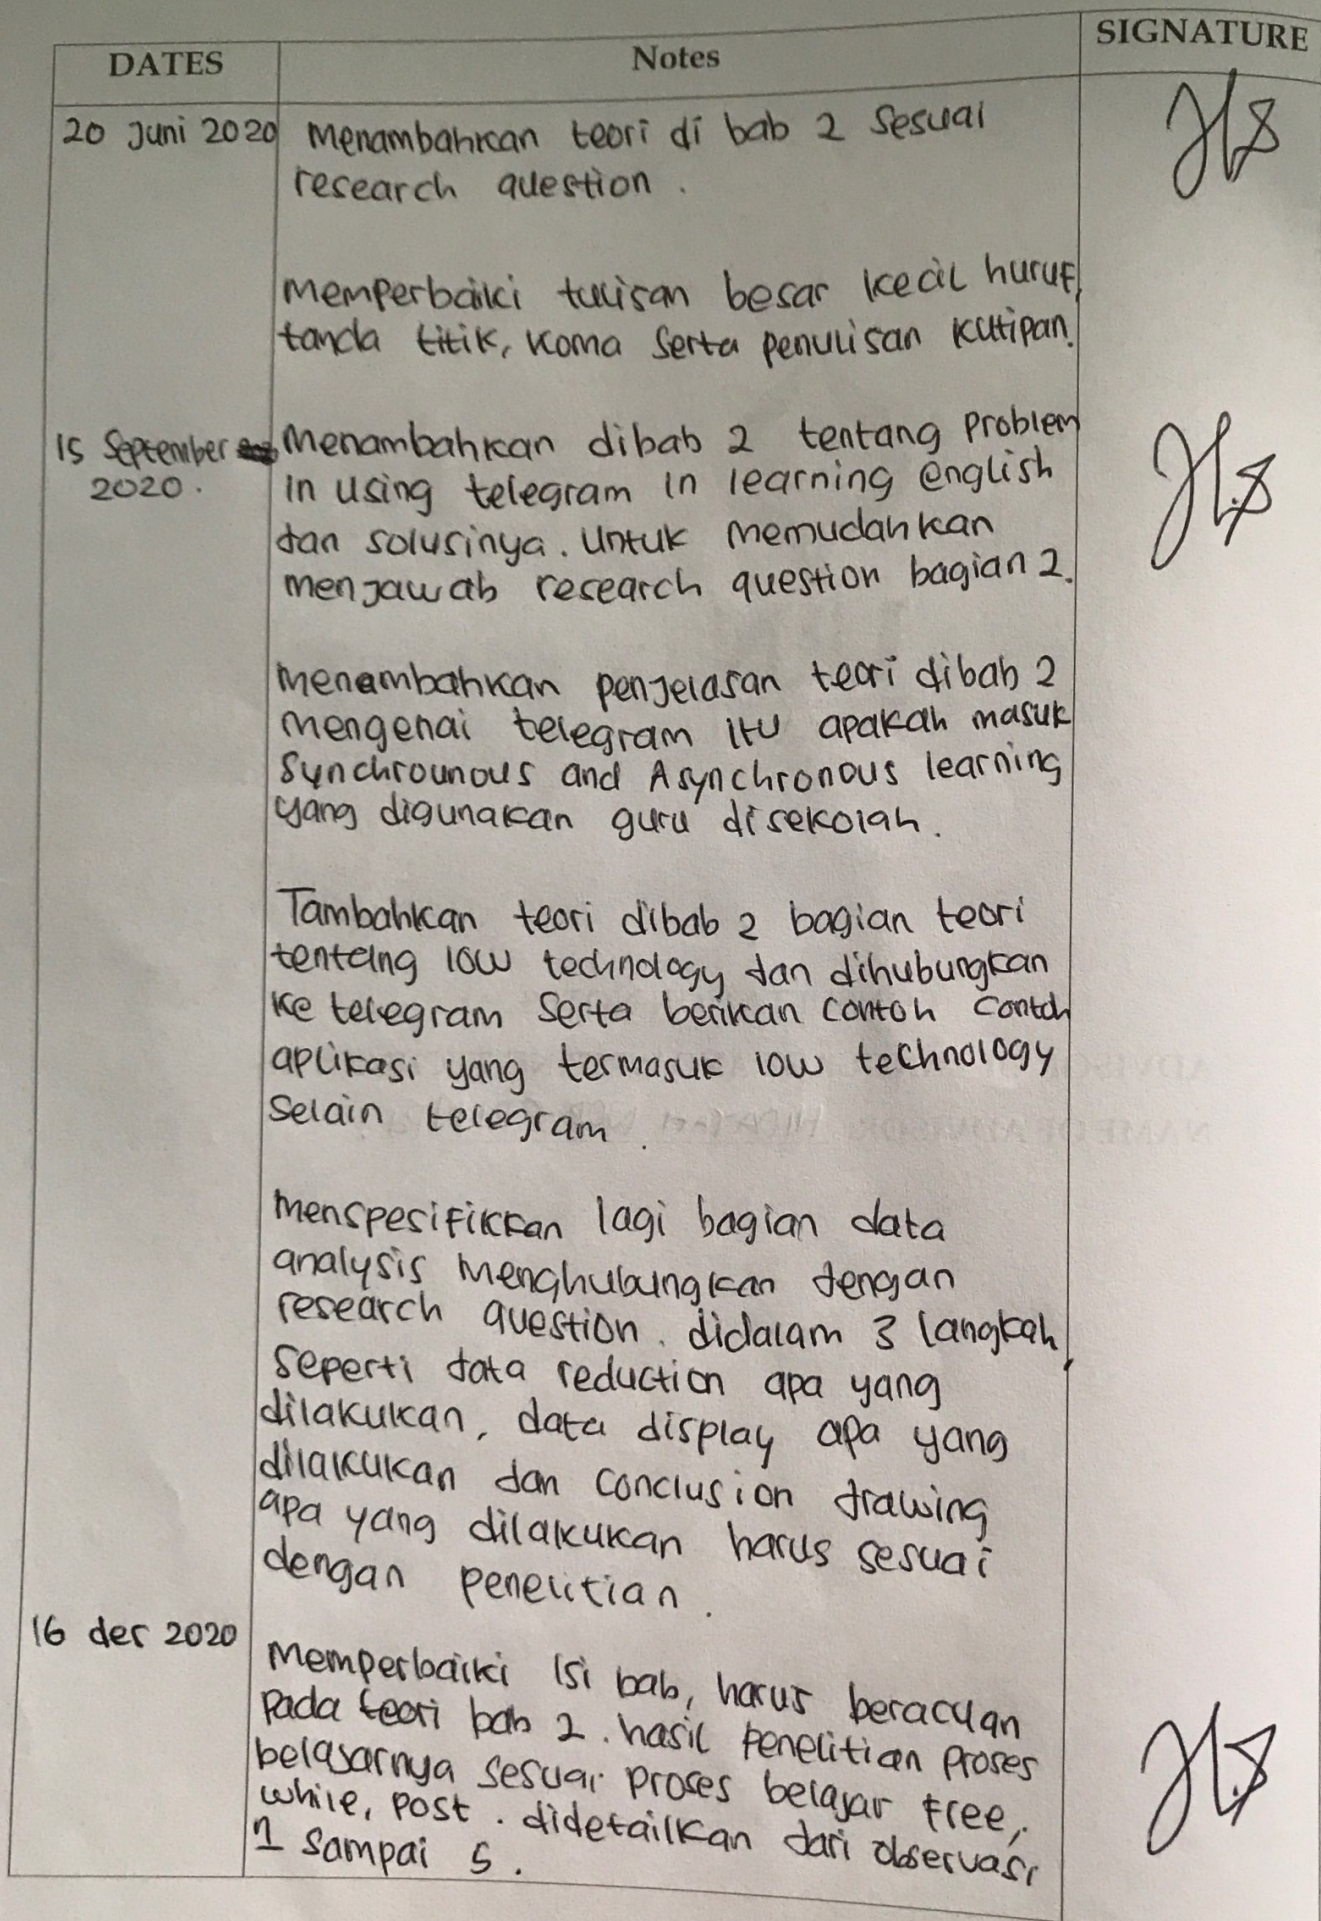 DATES Notes SIGNATURE
20 Juni 2020 Menambahkan teori di bab 2 sesuai
research question.
Memperbaiki tulisan besar kecil huruf,
tanda titik, koma serta penulisan kutipan.
15 September Menambahkan dibab 2 tentang problem
2020. in using telegram in learning english
dan solusinya. Untuk memudahkan
menjawab research question bagian 2.
Menambahkan penjelasan teori dibab 2
mengenai telegram itu apakah masuk
Synchrounous and Asynchronous learning
yang digunakan guru disekolah.
Tambahkan teori dibab 2 bagian teori
tentang low technology dan dihubungkan
ke telegram serta berikan contoh contoh
aplikasi yang termasuk low technology
selain telegram.
Menspesifikkan lagi bagian data
analysis menghubungkan dengan
research question. didalam 3 langkah,
seperti data reduction apa yang
dilakukan, data display apa yang
dilakukan dan conclusion drawing
apa yang dilakukan harus sesuai
dengan penelitian.
16 des 2020
Memperbaiki isi bab, harus beracuan
pada teori bab 2. hasil penelitian proses
belajarnya sesuai proses belajar free,
while, post. didetailkan dari observasi
1 sampai 5.